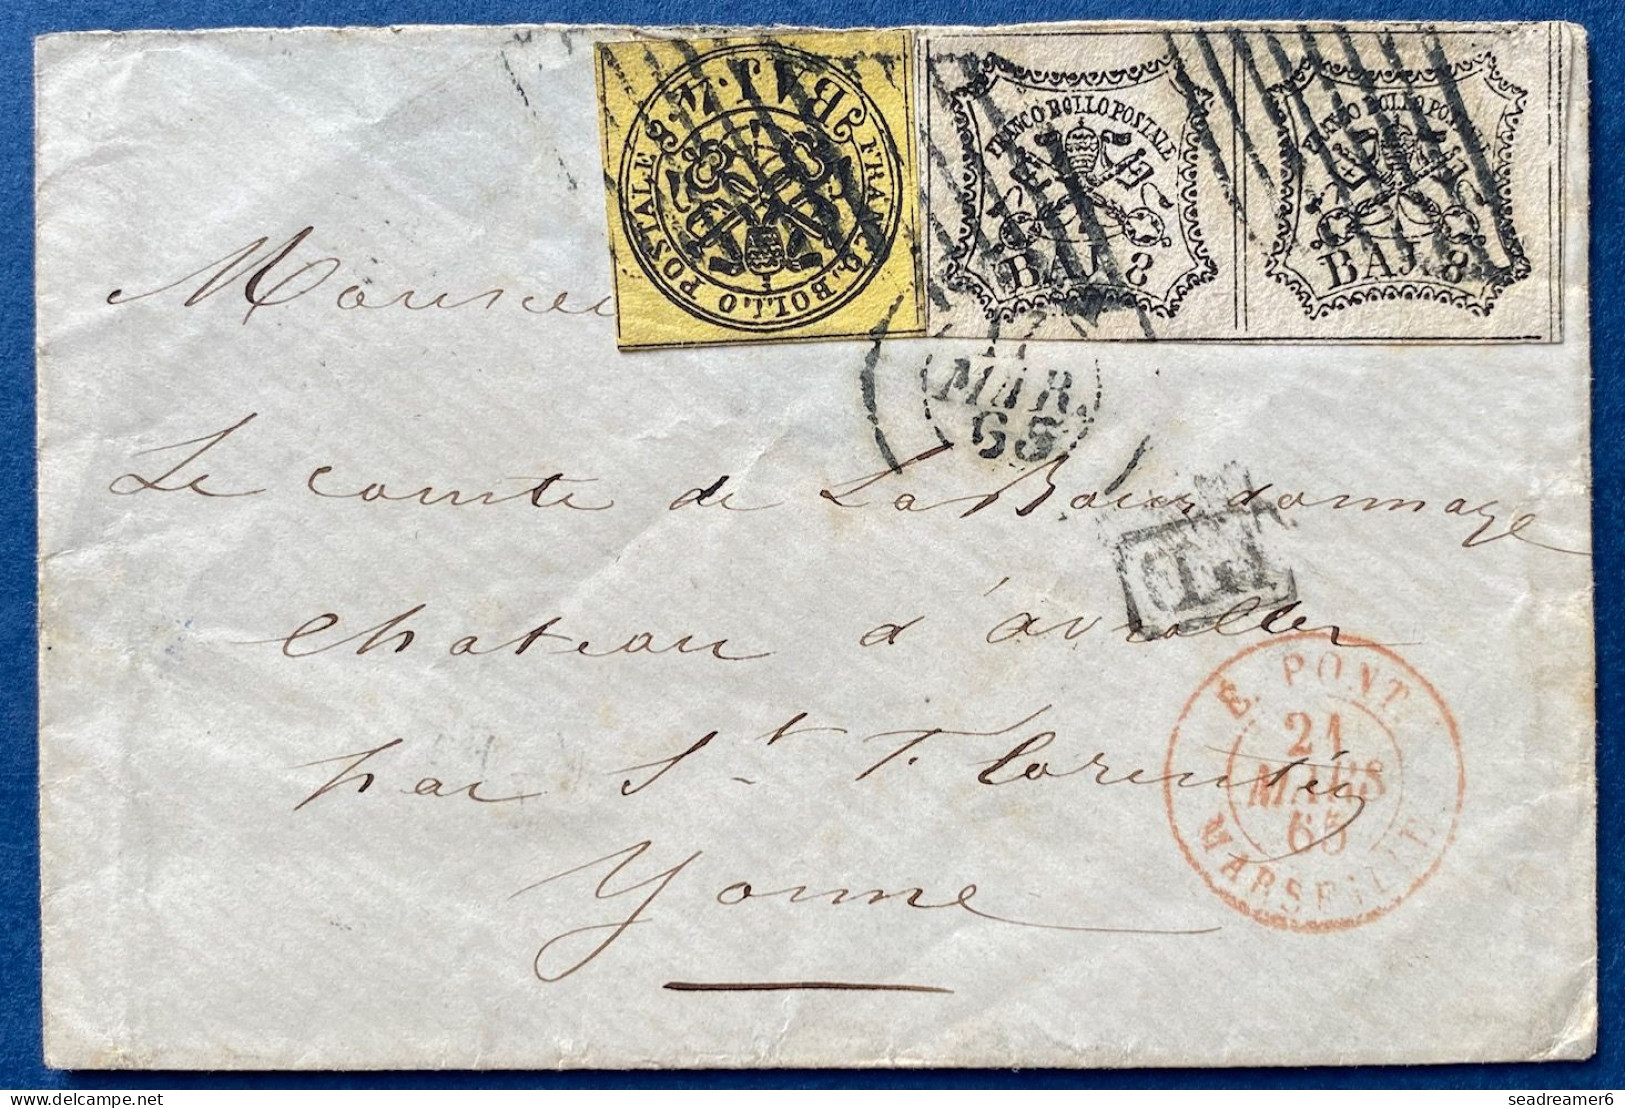 FRANCO BOLLO POSTALE
BAJ. 4
FRANCO BOLLO POSTALE
BAJ. 8
FRANCO BOLLO POSTALE
BAJ. 8
17
MAR.
65
Le comte de La Bourdonnaye
P.D.
chateau d'
par St Florentin
Yonne
E. PONT.
21
MARS
65
MARSEILLE
delcampe.net
seadreamer6